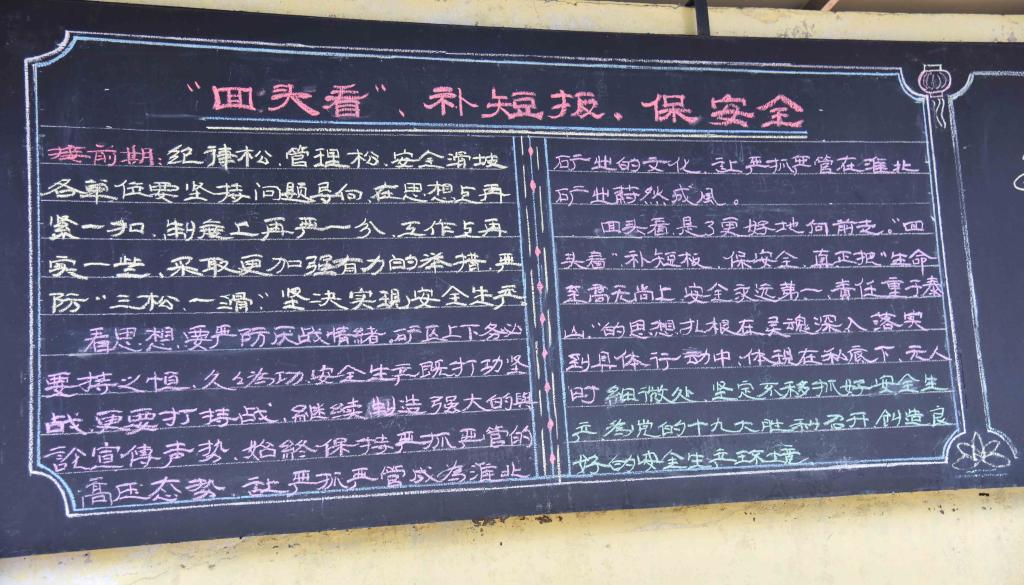 “回头看”、补短板、保安全
接前期：纪律松、管理松、安全滑坡
各单位要坚持问题导向，在思想上再
紧一扣，制度上再严一分，工作上再
实一些，采取更加强有力的举措，严
防“三松、一滑”坚决实现安全生产
看思想，要严防厌战情緒。矿区上下务必
要持之以恒，久久為功，安全生产既打功坚
战，更要打持战，継续制造强大的舆
訟宣傳声势，始終保持严抓严管的
高压态势，让严抓严管成為淮北
矿业的文化，让严抓严管在淮北
矿业蔚然成風。
回头看是了更好地向前走。“回
头看”补短板、保安全，真正把“生命
至高无尚上，安全永远第一，責任重于泰
山，”的思想扎根在灵魂深入落实
到具体行動中，体现在私底下、无人
时，細微处，坚定不移抓好安全生
产，為党的十九大胜利召开創造良
好的安全生产环境